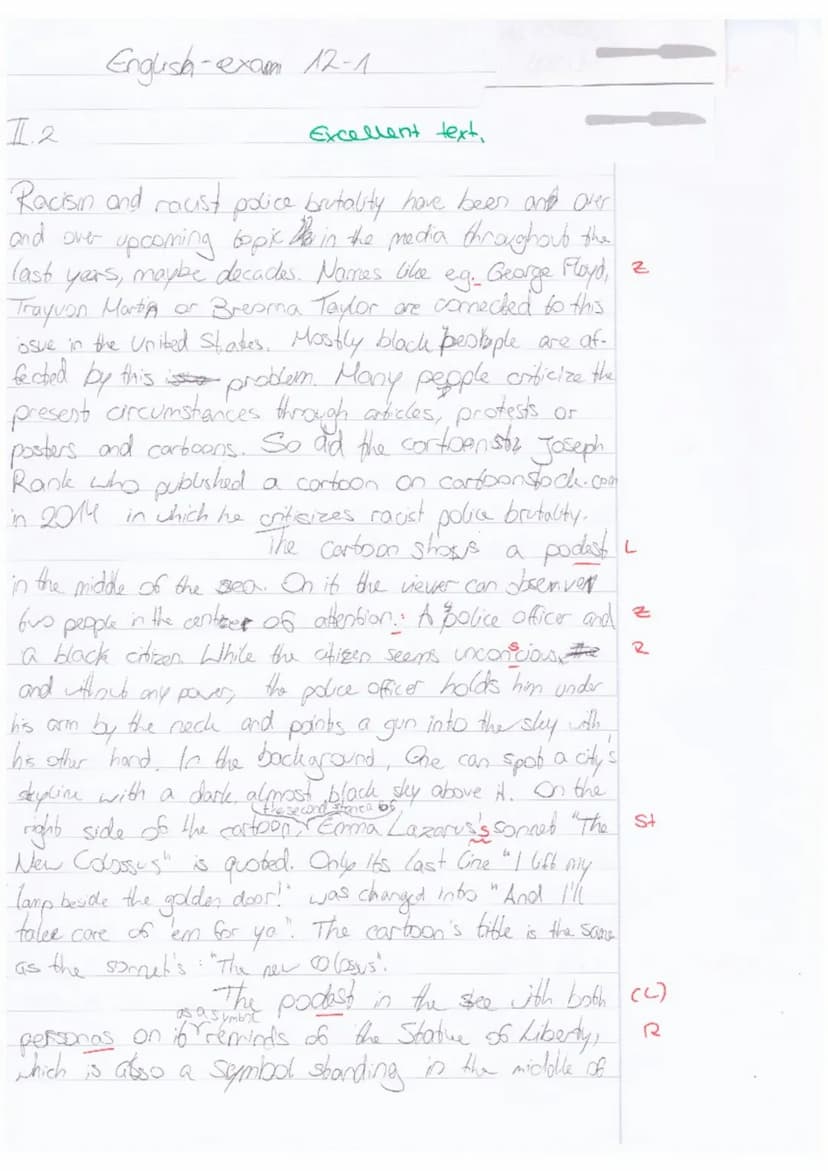 English-exam 12-1
II.2 Excellent text.
Racism and racist police brutality have been and over
and over upcoming topic in the media throughout the
last years, maybe decades. Names like e.g. George Floyd, Z
Trayvon Martin or Breonna Taylor are connected to this
issue in the United States. Mostly black people are af-
fected by this problem. Many people criticize the
present circumstances through articles, protests or
posters and cartoons. So did the cartoonist Joseph
Rank who published a cartoon on cartoonstock.com
in 2014 in which he critisizes racist police brutality.
The cartoon shows a podest L
in the middle of the sea. On it the viewer can observe
two people in the center of attention: A police officer and Z
a black citizen. While the citizen seems unconscious R
and without any power, the police officer holds him under
his arm by the neck and points a gun into the sky with
his other hand. In the background, One can spot a city's
skyline with a dark, almost black sky above it. On the
the second stanza of
right side of the cartoon, Emma Lazarus's sonnet "The St
New Colossus" is quoted. Only its last line "I lift my
lamp beside the golden door!" was changed into "And I'll
take care of 'em for ya". The cartoon's title is the same
as the sonnet's: "The new colosus".
The podest in the see with both (L)
as a symbol
personas on it reminds of the Statue of Liberty, R
which is also a symbol standing in the middle of